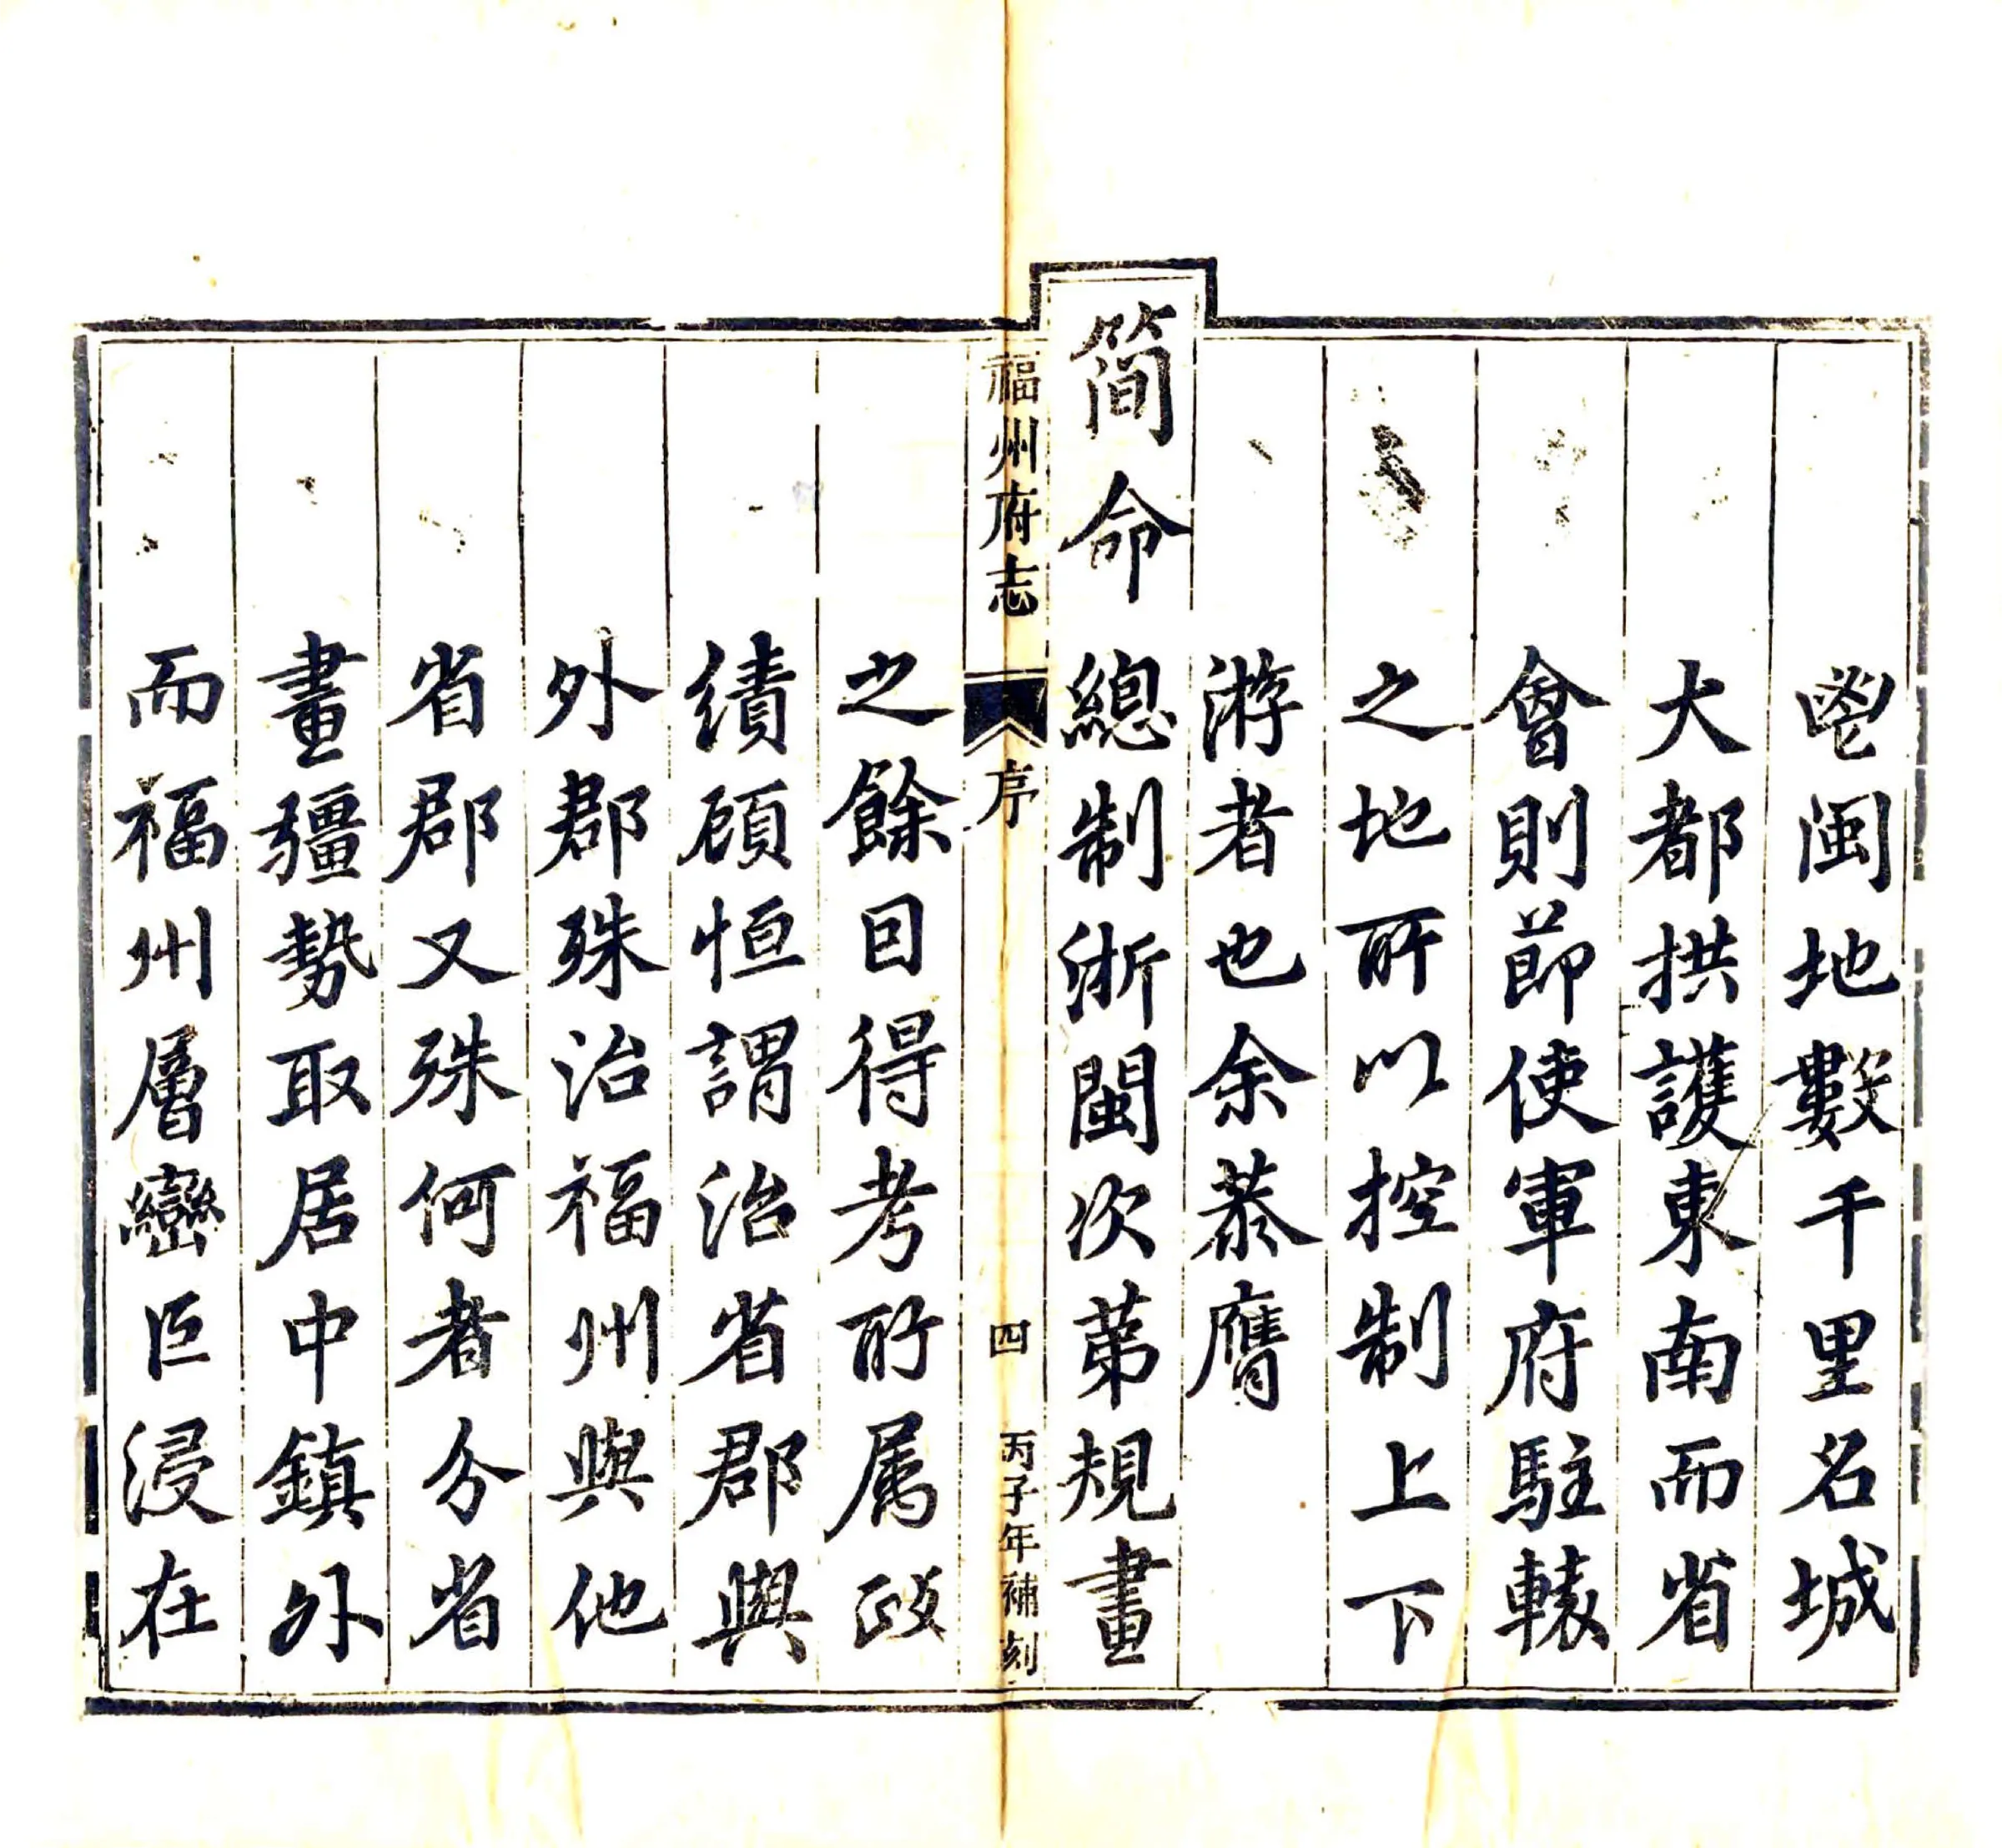 閩地數千里名城
大都拱護東南而省
會則節使軍府駐轅
之地所以控制上下
游者也余恭膺
簡命總制浙閩次第規畫
福州府志 序 四 丙子年補刻
之餘囙得考所属政
績顧恒謂治省郡與
外郡殊治福州與他
省郡又殊何者分省
畫疆勢取居中鎮外
而福州層巒巨浸在